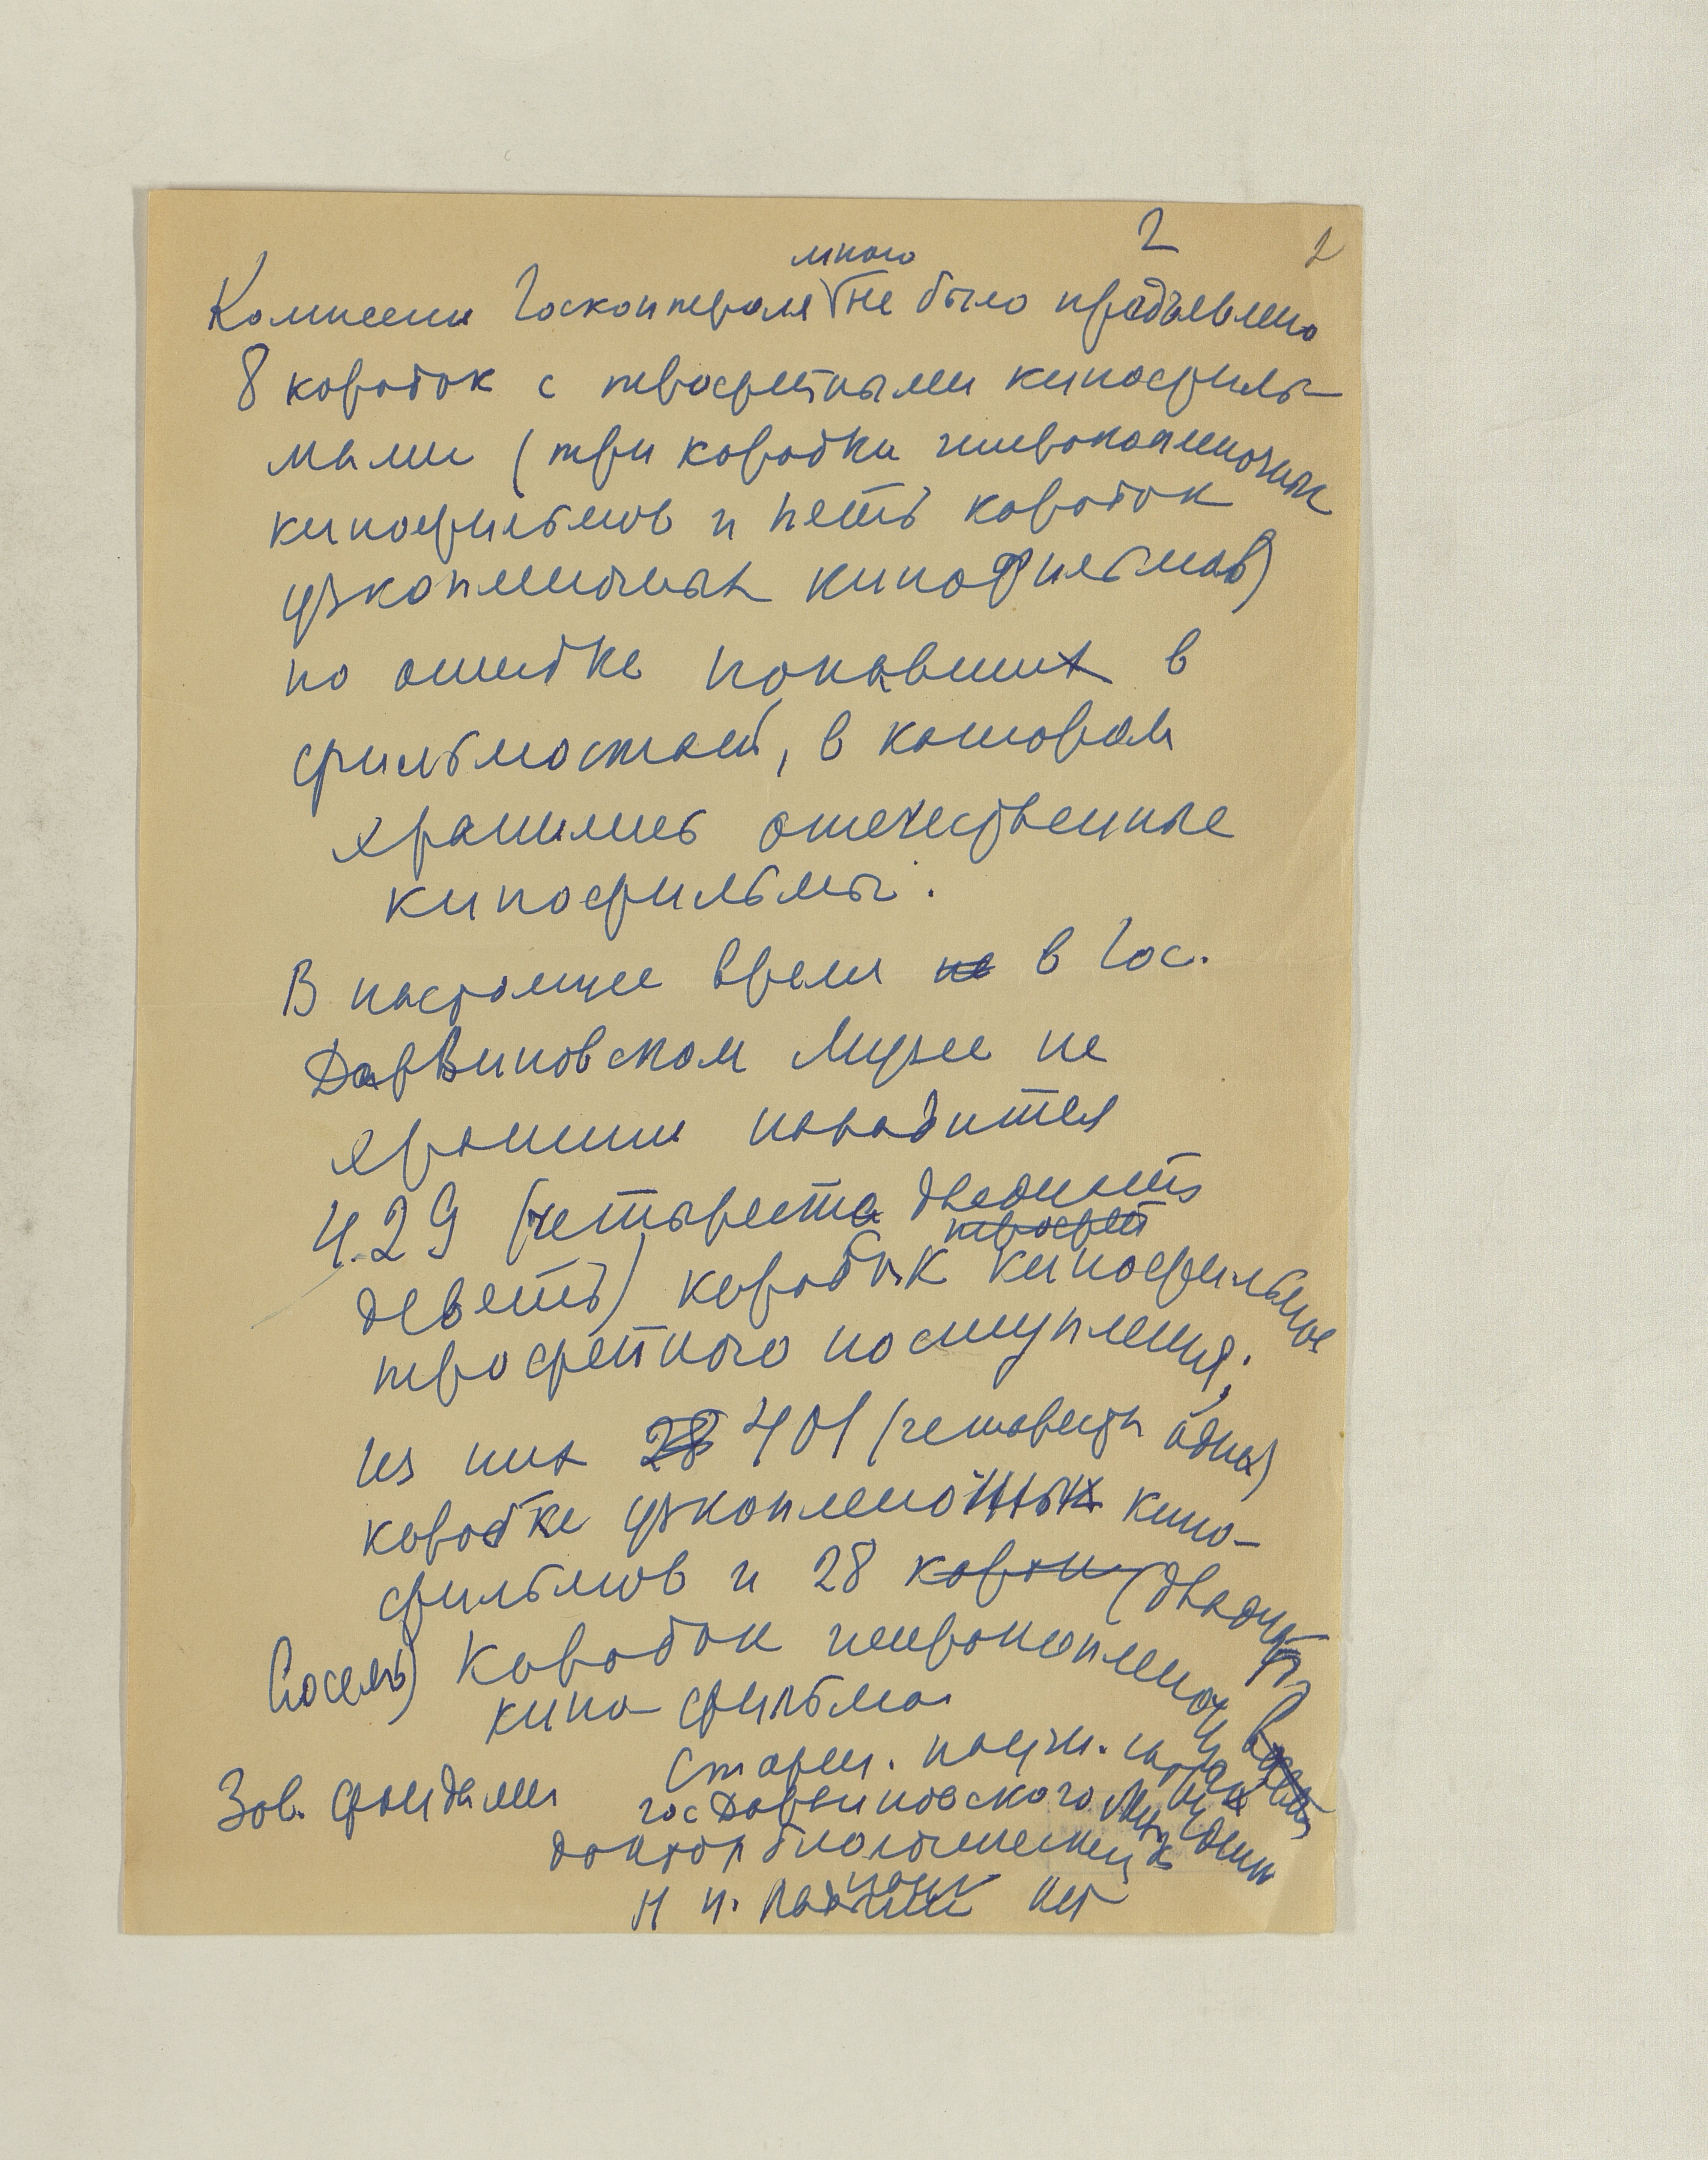 2 2
мною
Комиссии Госконтроля не было предъявлено
8 коробок с трофейными кинофиль-
мами (три коробки широкопленочных
кинофильмов и пять коробок
узкопленочных кинофильмов)
по ошибке попавших в
фильмостат, в котором
хранились отечественные
кинофильмы.
В настоящее время не в Гос.
Дарвиновском Музее не
хранении находится
429 (четыреста двадцать
трофей
девять) коробок кинофильмов
трофейного поступления;
из них 28 401 (четыреста одна)
коробка узкопленочных кино-
фильмов и 28 короч (двадцать
восемь) коробок широкопленочн
кино-фильма
Зав. фондами Старш. научн. сотрудник
гос Дарвиновского Музея
доктор биологических
наук
Н Н.